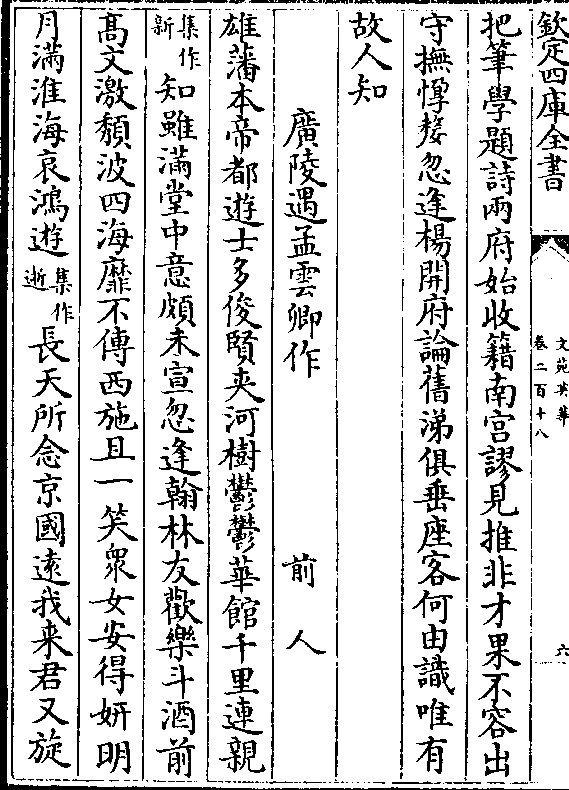 欽定四庫全書
文苑英華
卷二百十八
六
把筆學題詩兩府始收籍南宫謬見推非才果不容出
守撫惸嫠忽逢楊開府論舊涕俱垂座客何由識唯有
故人知
廣陵遇孟雲卿作 前人
雄藩本帝都遊士多俊賢夹河樹鬱鬱華館千里連親
集作新知雖滿堂中意頗未宣忽逢翰林友歡樂斗酒前
髙文激頽波四海靡不傳西施且一笑衆女安得妍明
月滿淮海哀鴻遊集作逝長天所念京國逺我来君又旋